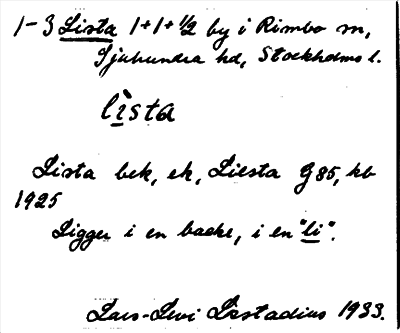 1-3 Lista 1+1+½ by i Rimbo sn,
Sjuhundra hd, Stockholms l.
lìsta
Lista bek, ek, Liesta G 85, kb
1925
Ligger i en backe, i en "li".
Lars-Levi Læstadius 1933.